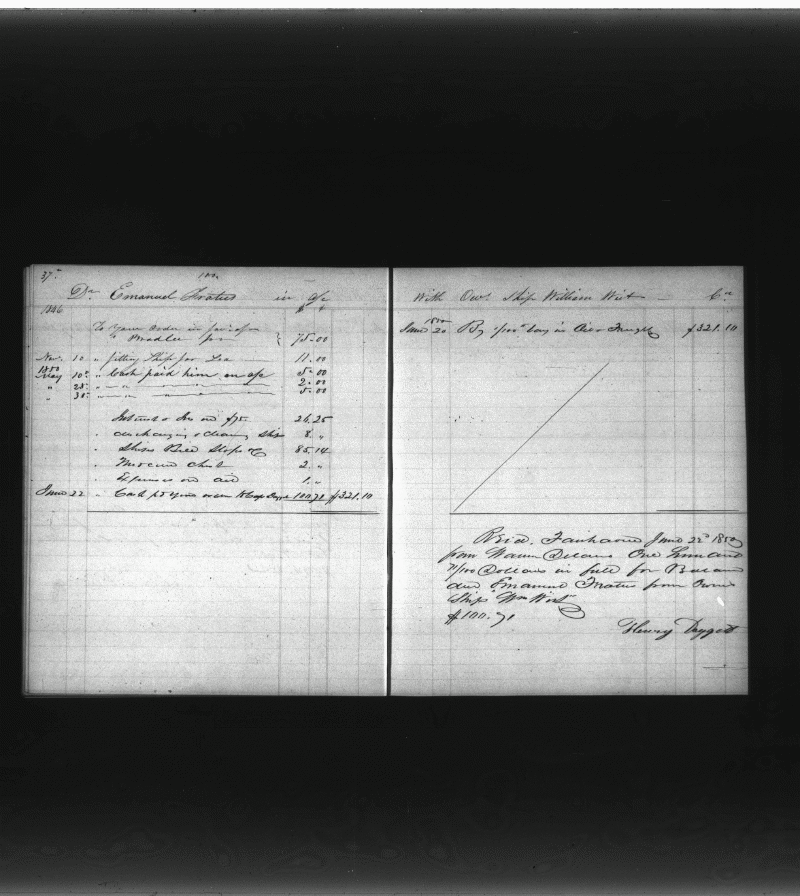 37
Dr Emanuel Frates in a/c
1846
To your order in favor of
Bradlee for 75.00
Nov. 10 " fitting Ship for Sea 11.00
1850
May 10 " Cash paid him on a/c 5.00
" 25 " " " 2.00
" 31 " " " 5.00
Interest & Ins on $75 26.25
" discharging & cleaning Ship 8. "
" Ships Bill Slops &c 85.14
" Medicine Chest 2. "
" Expenses on oil 1. "
June 22 " Cash pd your order to Capt Daggett 100.71 $321.10
With Ows. Ship William Wirt Cr
1850
June 20 By lay in $321.10
Recd. Fairhaven June 22d 1850
from Warren Delano One Hundred
71/100 Dollars in full for Balance
due Emanuel Frates from Owners
Ship Wm Wirt
$100.71
Henry Daggett